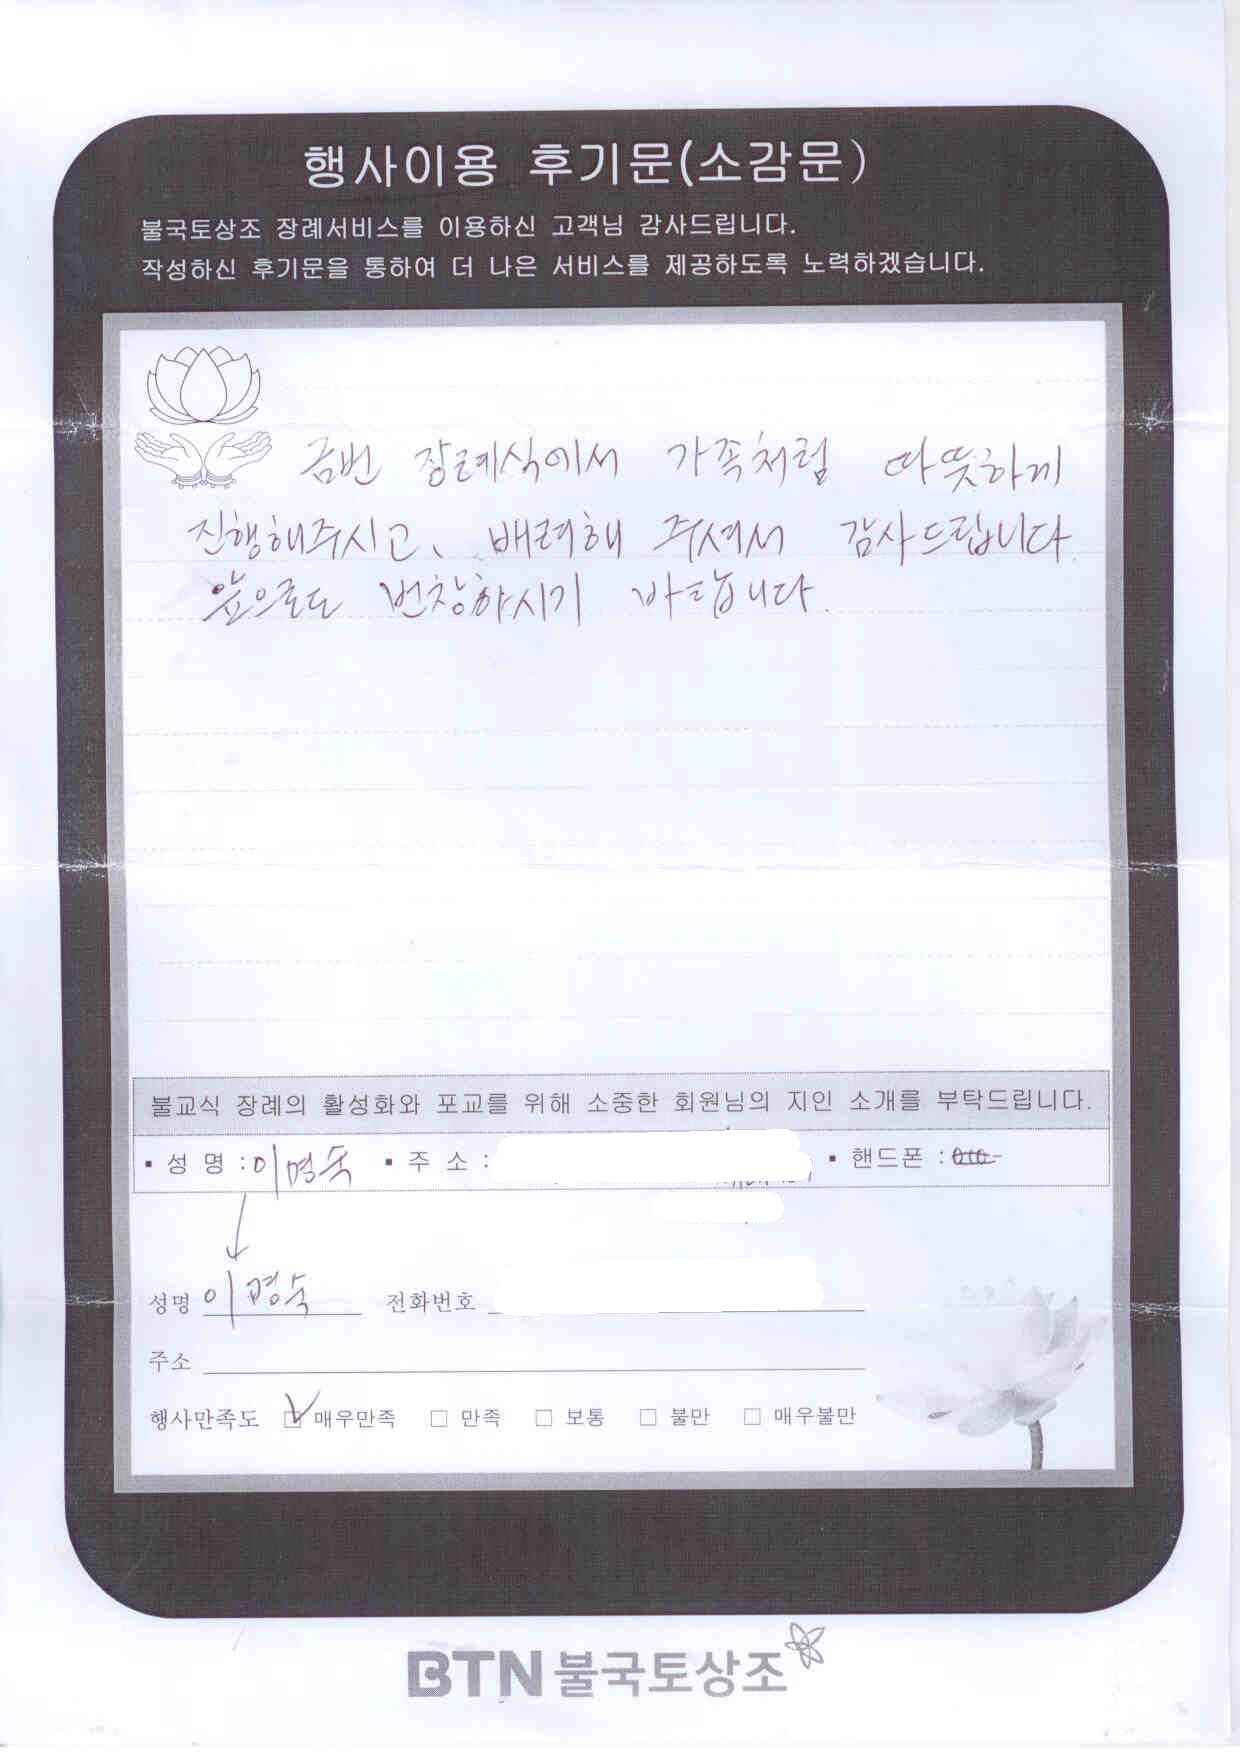 행사이용 후기문(소감문)
불국토상조 장례서비스를 이용하신 고객님 감사드립니다.
작성하신 후기문을 통하여 더 나은 서비스를 제공하도록 노력하겠습니다.
금번 장례식에서 가족처럼 따뜻하게
진행해주시고, 배려해 주셔서 감사드립니다.
앞으로도 번창하시기 바랍니다.
불교식 장례의 활성화와 포교를 위해 소중한 회원님의 지인 소개를 부탁드립니다.
▪ 성 명 : 이명숙 ▪ 주 소 : ▪ 핸드폰 : 010-
성명 이명숙 전화번호
주소
행사만족도 ☑ 매우만족 □ 만족 □ 보통 □ 불만 □ 매우불만
BTN불국토상조